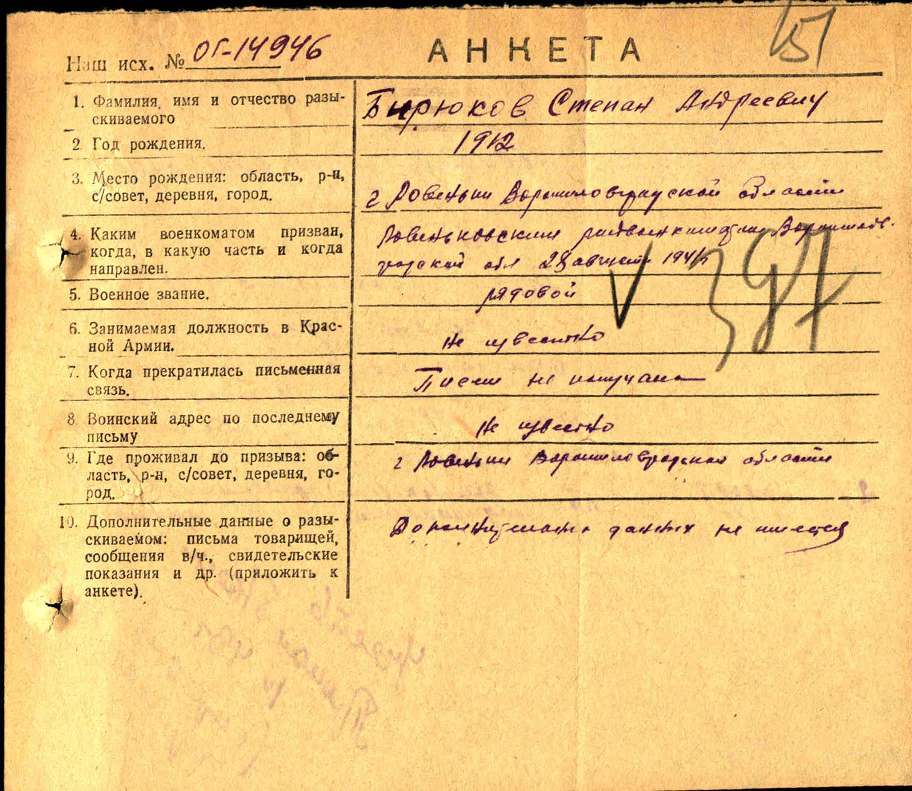 Наш исх. № ОГ-14946
АНКЕТА
1. Фамилия, имя и отчество разы-
скиваемого
Бирюков Степан Андреевич
2. Год рождения.
1912
3. Место рождения: область, р-н,
с/совет, деревня, город.
г Ровеньки Ворошиловградской области
4. Каким военкоматом призван,
когда, в какую часть и когда
направлен.
Ровеньковским райвоенкоматом Ворошилов-
градской обл 28 август 1941
5. Военное звание.
рядовой
6. Занимаемая должность в Крас-
ной Армии.
не известно
7. Когда прекратилась письменная
связь.
Писем не получала
8. Воинский адрес по последнему
письму
не известно
9. Где проживал до призыва: об-
ласть, р-н, с/совет, деревня, го-
род.
г Ровеньки Ворошиловградской области
10. Дополнительные данные о разы-
скиваемом: письма товарищей,
сообщения в/ч., свидетельские
показания и др. (приложить к
анкете).
Дополнительных данных не имеется